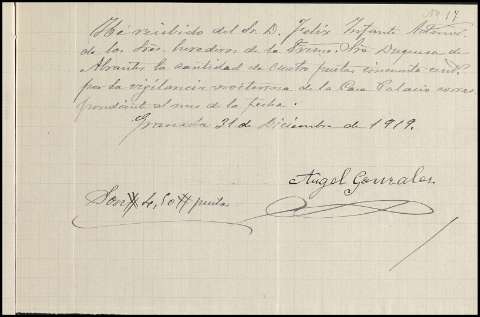 Nº 17
He recibido del Sr. D. Felix Infante
de los Sres. herederos de la Excma. Sra Duquesa de
Abrantes la cantidad de cuatro pesetas cincuenta cent.
por la vigilancia nocturna de la Casa Palacio corres
pondiente al mes de la fecha.
Granada 31 de Diciembre de 1919.
Angel Gonzales.
Son # 4,50 # pesetas